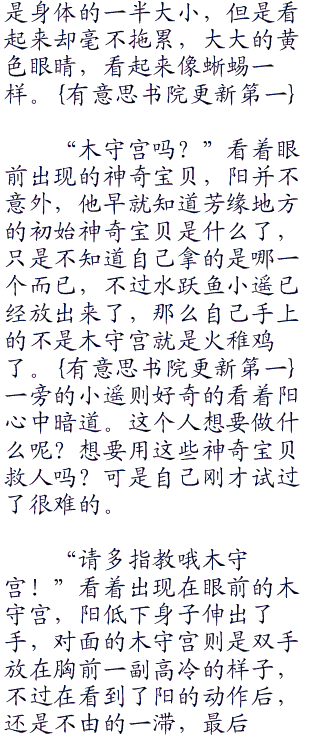 是身体的一半大小，但是看
起来却毫不拖累，大大的黄
色眼睛，看起来像蜥蜴一
样。{有意思书院更新第一}
“木守宫吗？”看着眼
前出现的神奇宝贝，阳并不
意外，他早就知道芳缘地方
的初始神奇宝贝是什么了，
只是不知道自己拿的是哪一
个而已，不过水跃鱼小遥已
经放出来了，那么自己手上
的不是木守宫就是火稚鸡
了。{有意思书院更新第一}
一旁的小遥则好奇的看着阳
心中暗道。这个人想要做什
么呢？想要用这些神奇宝贝
救人吗？可是自己刚才试过
了很难的。
“请多指教哦木守
宫！”看着出现在眼前的木
守宫，阳低下身子伸出了
手，对面的木守宫则是双手
放在胸前一副高冷的样子，
不过在看到了阳的动作后，
还是不由的一滞，最后